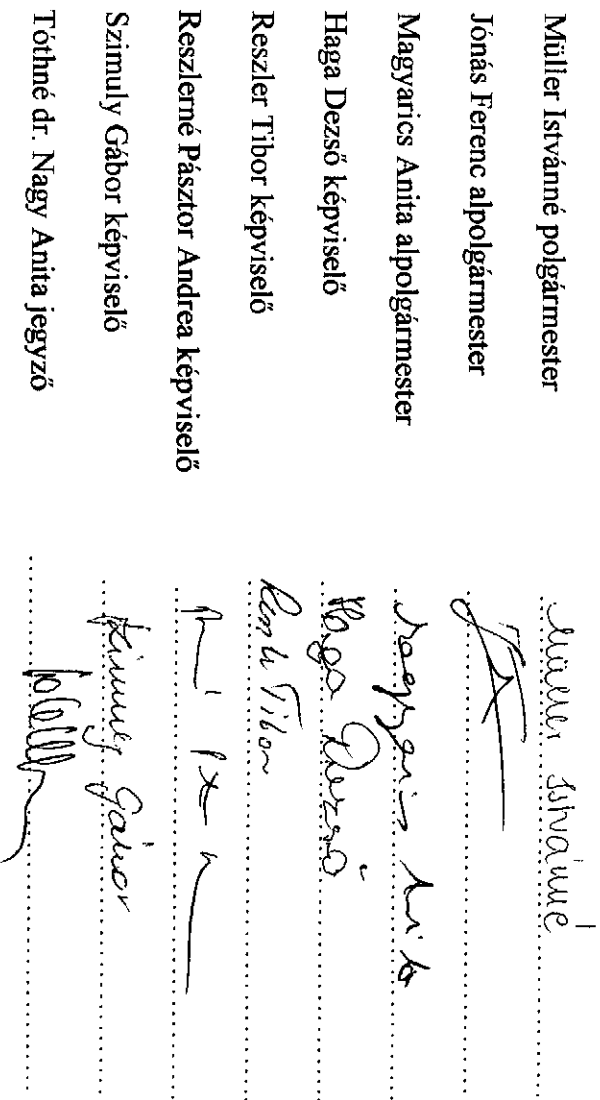 Müller Istvánné polgármester Müller Istvánné
Jónás Ferenc alpolgármester
Magyarics Anita alpolgármester Magyarics Anita
Haga Dezső képviselő Haga Dezső
Reszler Tibor képviselő Reszler Tibor
Reszlerné Pásztor Andrea képviselő
Szimuly Gábor képviselő Szimuly Gábor
Tóthné dr. Nagy Anita jegyző